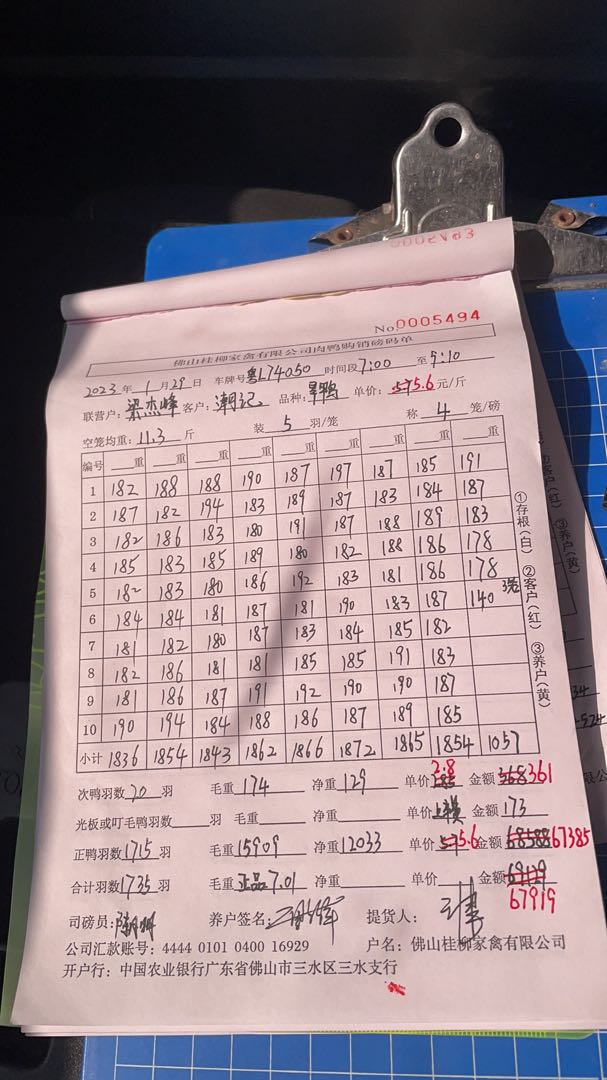 No.0005494
佛山桂柳家禽有限公司肉鸭购销磅码单
2023年 1月29日 车牌号粤L74050 时间段7:00 至9:10
联营户: 梁杰峰 客户: 潮记 品种: 单价: 5.6元/斤
空笼均重: 11.3 斤 装 5 羽/笼 称 4 笼/磅
编号 重 重 重 重 重 重 重 重 重
1 182 188 188 190 187 197 187 185 191
2 187 182 194 183 189 187 183 184 187
3 182 186 183 180 191 187 188 189 183
4 185 183 185 189 180 182 188 186 178
5 182 183 180 186 192 183 181 186 178
6 184 184 181 187 181 190 183 187 140
7 181 182 180 187 183 184 185 182
8 182 186 181 181 185 185 191 183
9 181 186 187 191 192 190 190 187
10 190 194 184 188 186 187 189 185
小计 1836 1854 1843 1862 1866 1872 1865 1854 1057
①存根(白) ②客户(红) ③养户(黄)
次鸭羽数 20 羽 毛重 174 净重 129 单价 2.8 金额 361
光板或叮毛鸭羽数 羽 毛重 净重 单价 金额 173
正鸭羽数1715 羽 毛重15909 净重12033 单价 5.6 金额 67385
合计羽数1735 羽 毛重正品7.01 净重 单价 金额 67919
司磅员: 养户签名: 提货人:
公司汇款账号: 4444 0101 0400 16929 户名: 佛山桂柳家禽有限公司
开户行: 中国农业银行广东省佛山市三水区三水支行